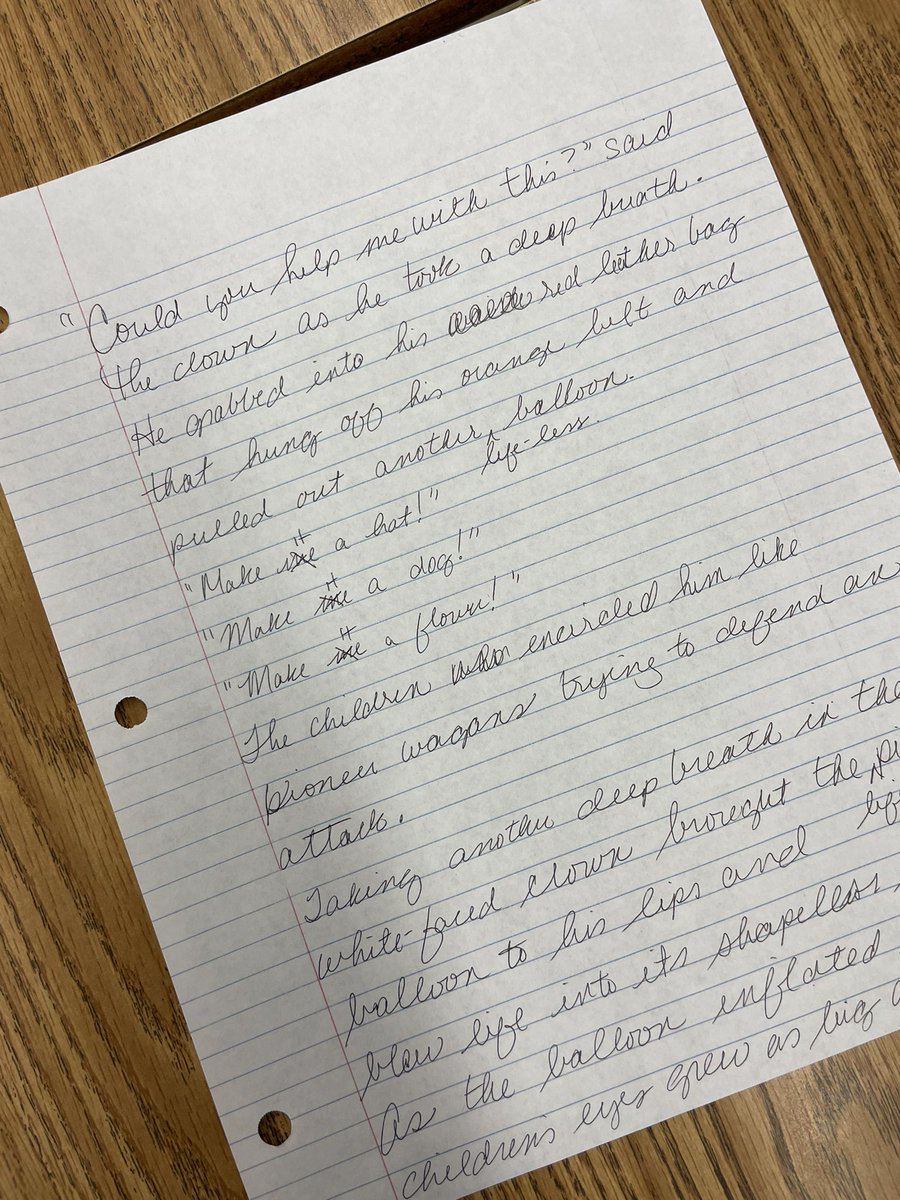 "Could you help me with this?" said
the clown as he took a deep breath.
He grabbed into his red leather bag
that hung off his orange belt and
pulled out another life-less balloon.
"Make it a hat!"
"Make it a dog!"
"Make it a flower!"
The children encircled him like
pioneer wagons trying to defend an
attack.
Taking another deep breath in the
white-faced clown brought the
balloon to his lips and
blow life into its shapeless
As the balloon inflated
children's eyes grew as big